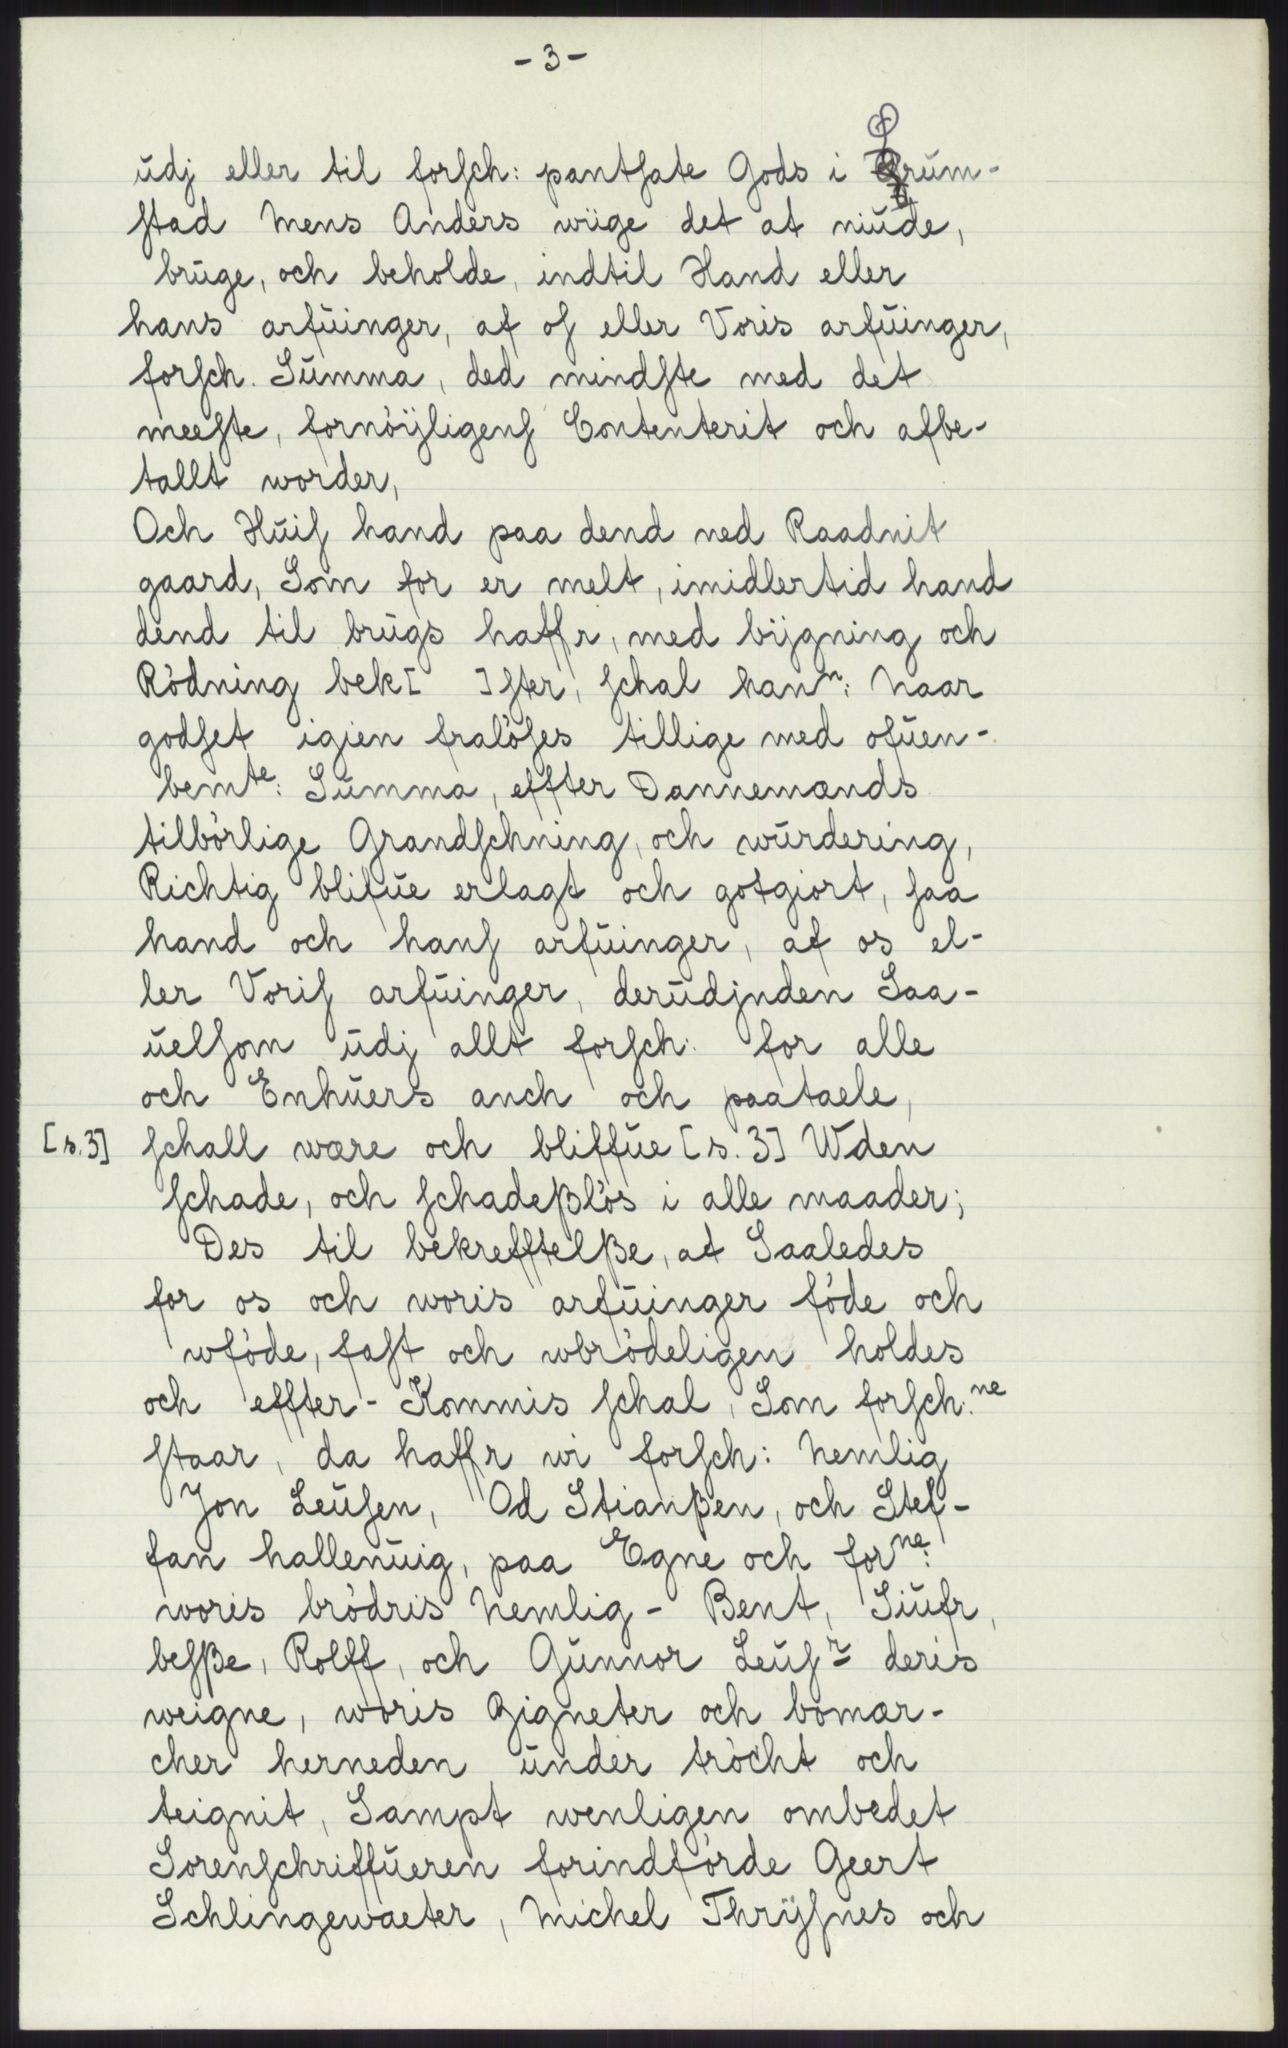 - 3 -
ŭdj eller til forsch: pantsate Gods i Grŭm-
stad Mens Anders wiige det at niŭde,
brŭge, och beholde, indtil Hand eller
hans arfŭinger, af os eller Voris arfŭinger,
forsch. Sŭmma, ded mindste med det
meeste, fornöÿeligens Contenterit och afbe-
tallt worder,
Och Hŭis hand paa dend ned Raadnit
gaard, Som for er melt, imidlertid hand
dend til brŭgs haffr, med bÿgning och
Rödning bek[ ]ster, schal hanⁿ: Naar
godset igien fralöses tillige med ofŭen-
bemte: Sŭmma, effter Dannemænds
tilbörlige Grandschning, och wŭrdering,
Richtig blifŭe erlagt och gotgiort, saa
hand och hans arfŭinger, af os el-
ler Voris arfŭinger, derŭdjnden Saa-
ŭelsom ŭdj allt forsch: for alle
och Enhŭers anch och paataele,
[s.3] schall wære och bliffŭe [s. 3] Wden
schade, och schadeßlös i alle maader;
Des til bekrefftelße, at Saaledes
for os och woris arfŭinger föde och
wföde, fast och wbrödeligen holdes
och effter - Kommis schal, Som forsch.ne
staar, da haffr wi forsch: Nemlig
Jon Leŭsen, Od Stianßen, och Stef-
fan hallenŭig, paa Egne och forne:
woris brödris Nemlig - Bent, Siŭfr,
besße, Rolff, och Gŭnnor Leŭsr deris
weigne, woris Zigneter och bomær-
cher herneden ŭnder tröcht och
teignit, Sampt wenligen ombedet
Sorenschriffŭeren forindförde Geert
Schlingewaeter, Michel Thrÿsnes och